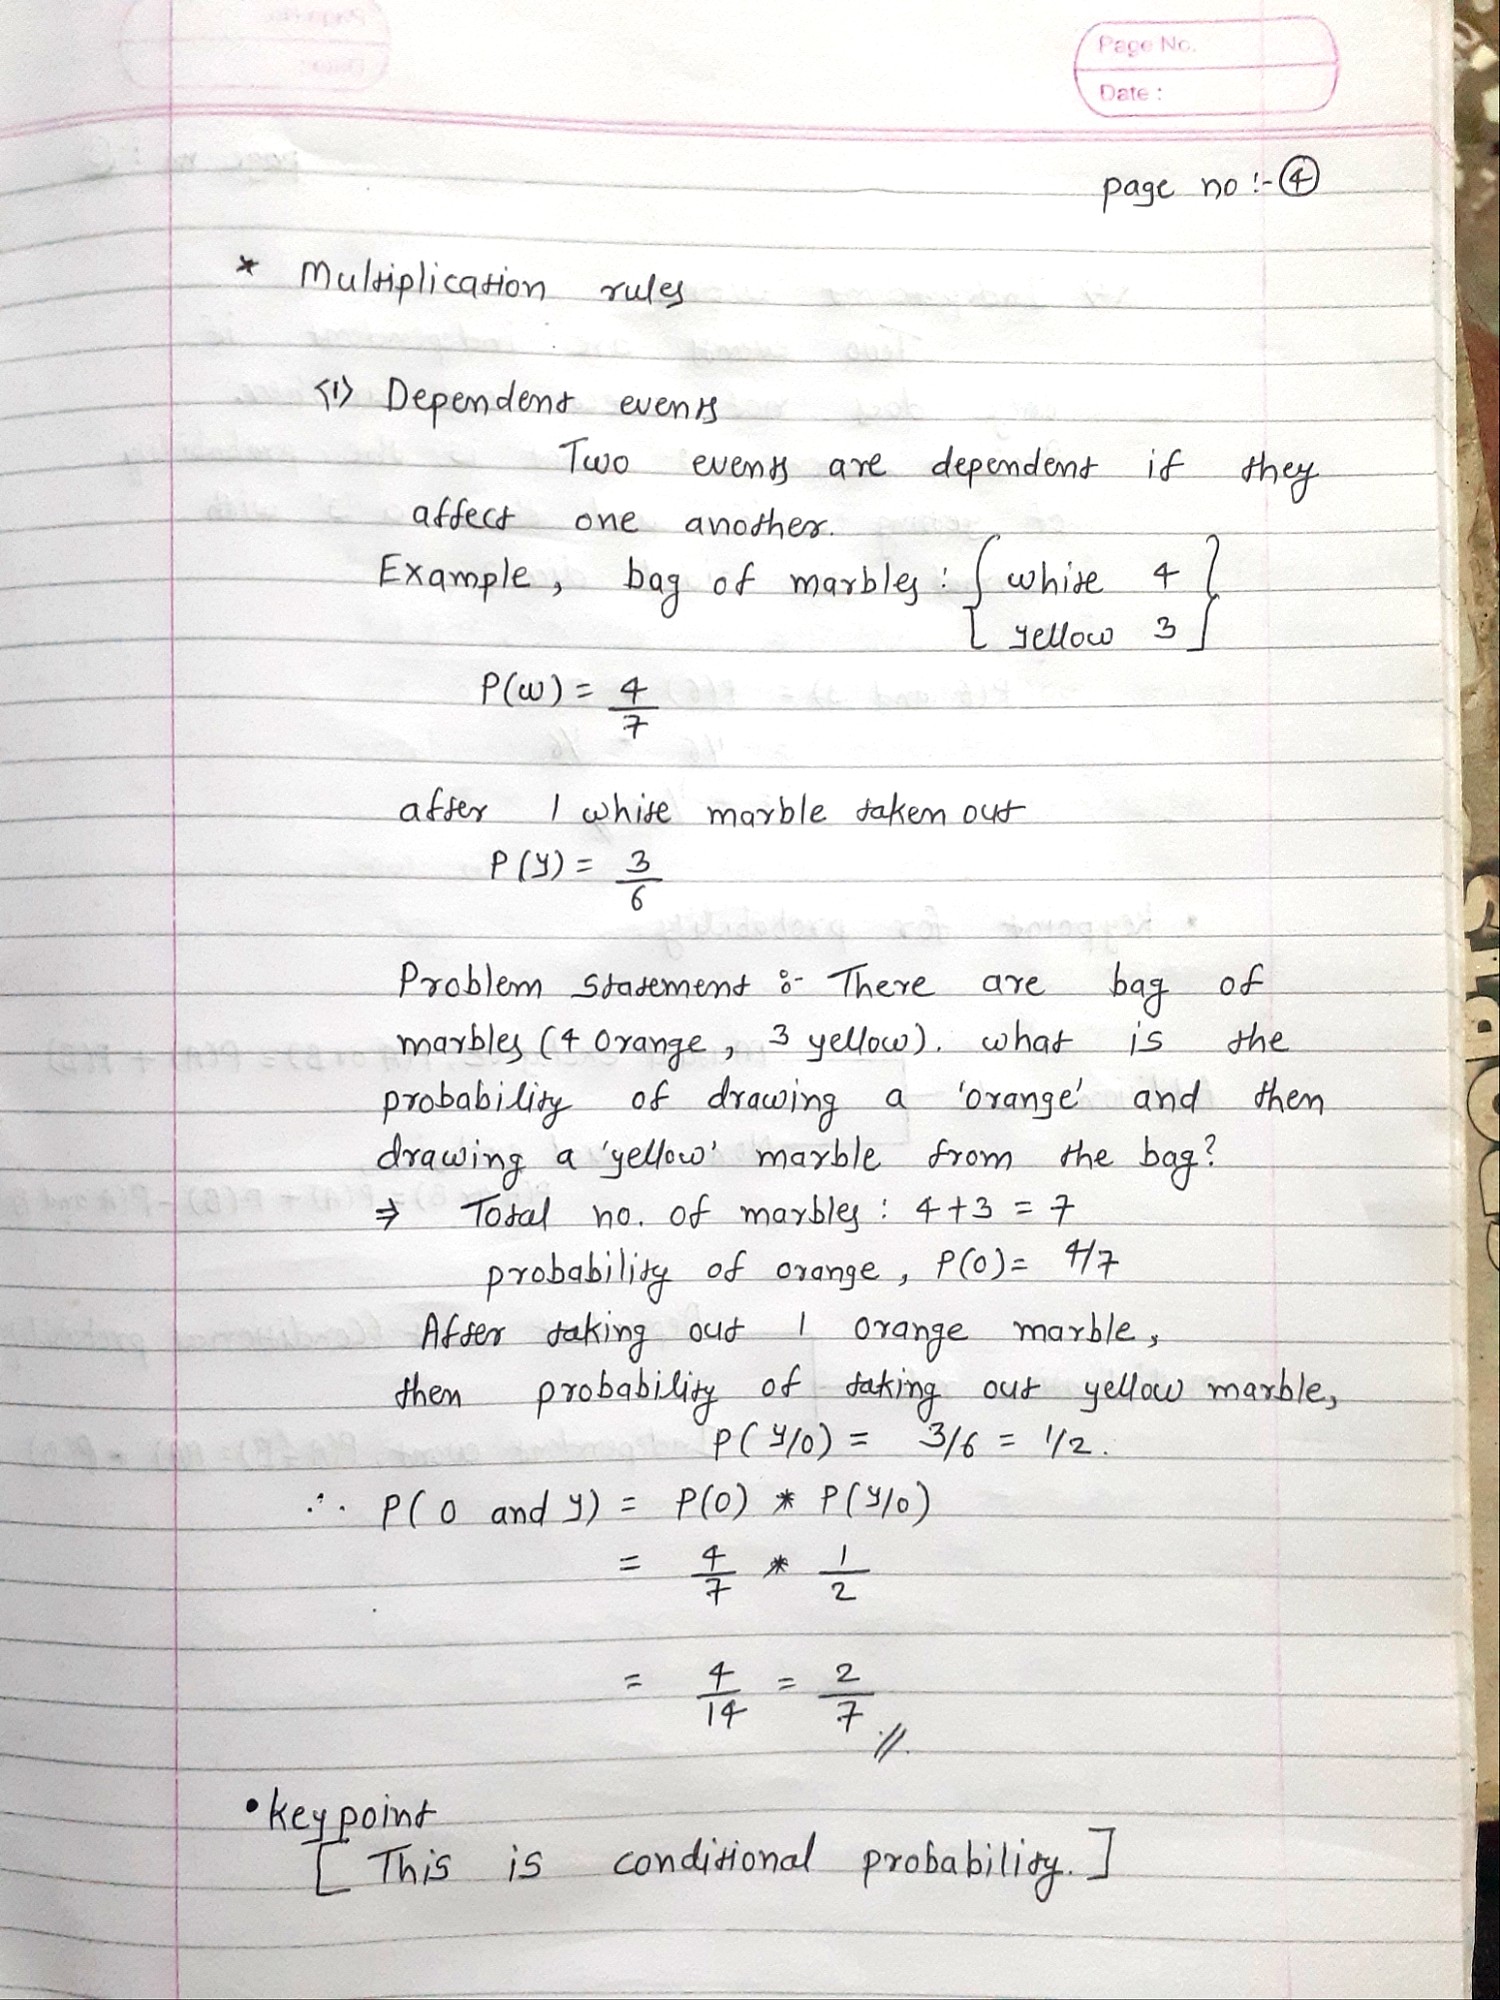 Page No.
Date :
page no :- ④
* Multiplication rules
<1> Dependent events
Two events are dependent if they
affect one another.
Example, bag of marbles : { white 4 }
[ yellow 3 ]
P(W) = 4/7
after 1 white marble taken out
P(Y) = 3/6
Problem statement :- There are bag of
marbles (4 orange, 3 yellow). what is the
probability of drawing a 'orange' and then
drawing a 'yellow' marble from the bag?
⇒ Total no. of marbles : 4+3 = 7
probability of orange, P(O) = 4/7
After taking out 1 orange marble,
then probability of taking out yellow marble,
P(Y/O) = 3/6 = 1/2.
∴ P(O and Y) = P(O) * P(Y/O)
= 4/7 * 1/2
= 4/14 = 2/7 //.
• keypoint
[ This is conditional probability. ]